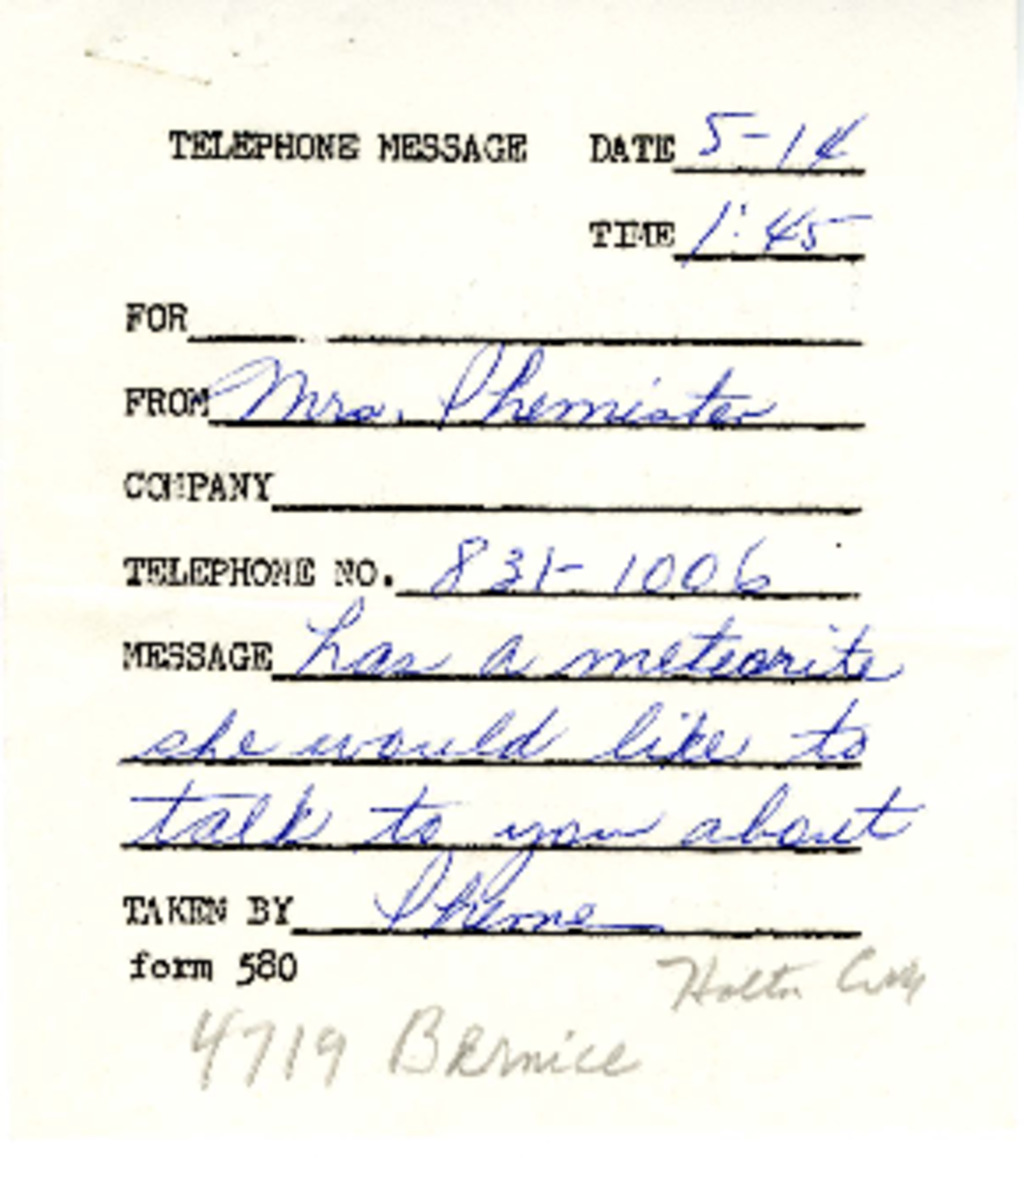 TELEPHONE MESSAGE DATE 5-14
TIME 1:45
FOR
FROM Mrs. Phemister
COMPANY
TELEPHONE NO. 831-1006
MESSAGE has a meteorite
she would like to
talk to you about
TAKEN BY
form 580
4719 Bernice